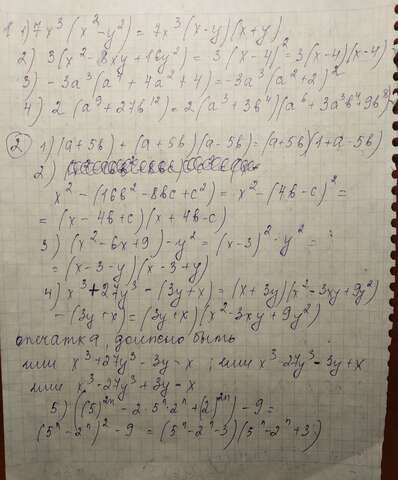 1. 1) 7x³(x²-y²) = 7x³(x-y)(x+y)
2) 3(x²-8xy+16y²) = 3(x-4)² = 3(x-4)(x-4)
3) -3a³(a⁴+4a²+4) = -3a³(a²+2)²
4) 2(a⁹+27b¹²) = 2(a³+3b⁴)(a⁶+3a³b⁴+9b⁸)
② 1) (a+5b)+(a+5b)(a-5b) = (a+5b)(1+a-5b)
2)
x²-(16b²-8bc+c²) = x²-(4b-c)² =
= (x-4b+c)(x+4b-c)
3) (x²-6x+9)-y² = (x-3)²-y² =
= (x-3-y)(x-3+y)
4) x³+27y³-(3y+x) = (x+3y)(x²-3xy+9y²)
-(3y+x) = (3y+x)(x²-3xy+9y²)
опечатка, должно быть
или x³+27y³-3y-x; или x³-27y³-3y+x
или x³-27y³+3y-x
5) ((5)²ⁿ-2·5ⁿ·2ⁿ+(2)²ⁿ)-9 =
(5ⁿ-2ⁿ)²-9 = (5ⁿ-2ⁿ-3)(5ⁿ-2ⁿ+3)